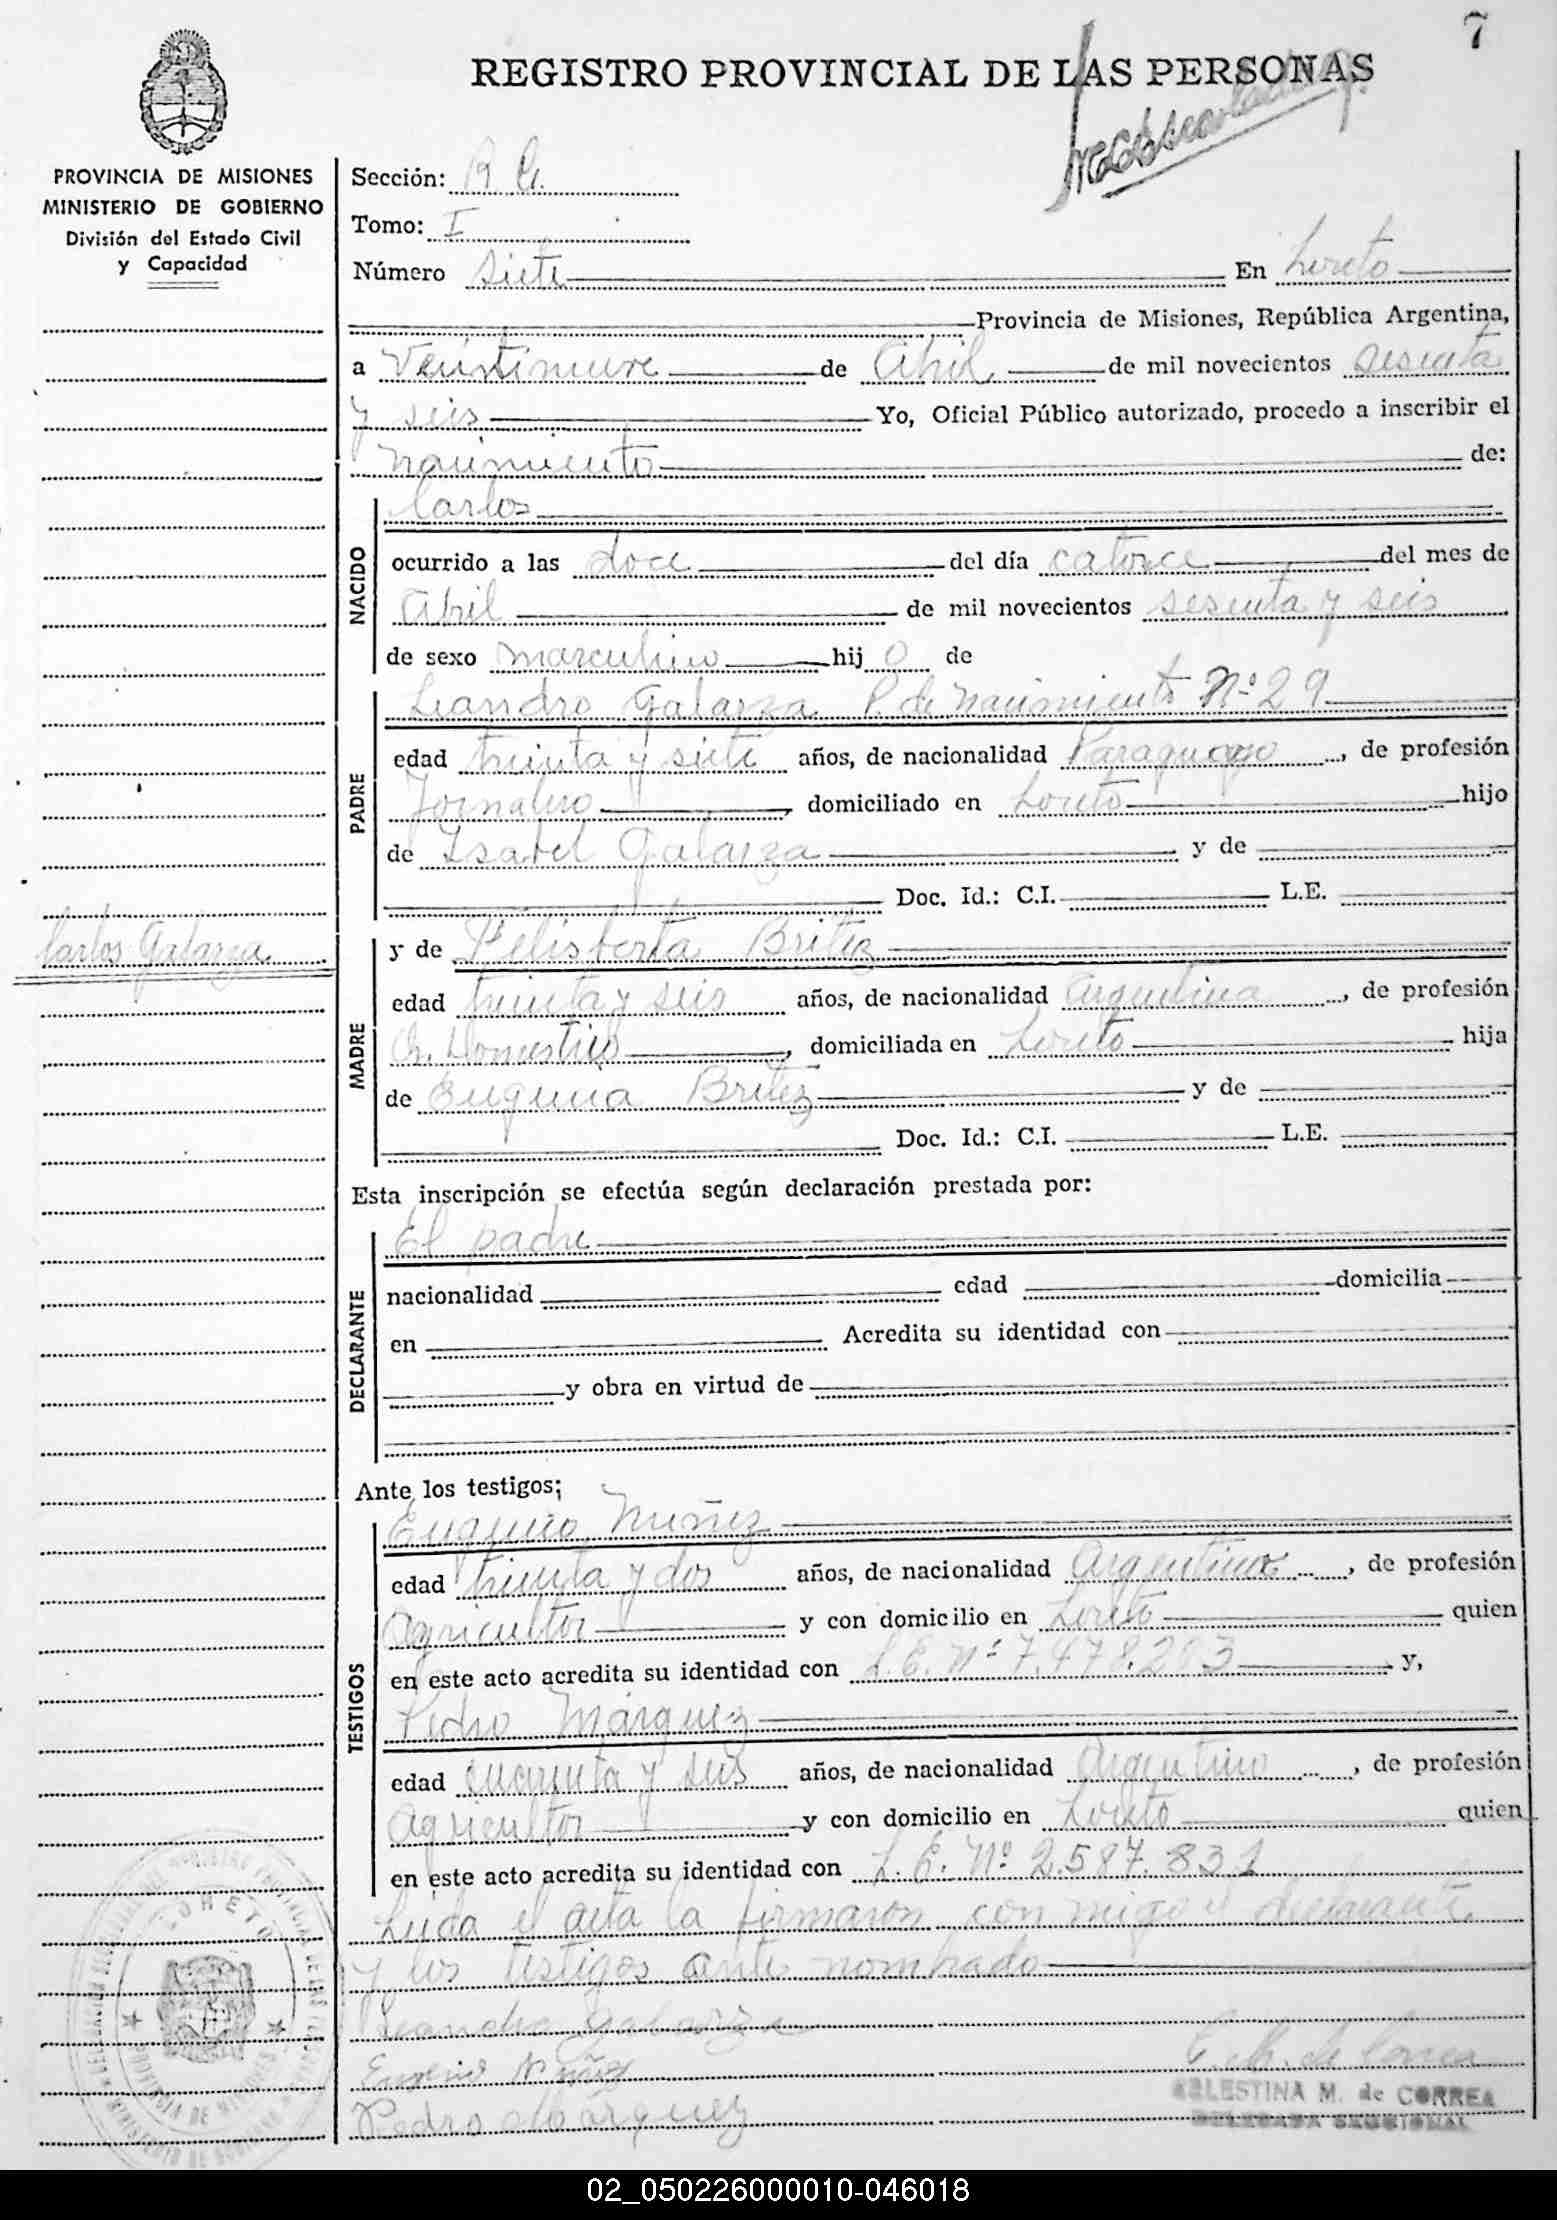 7
REGISTRO PROVINCIAL DE LAS PERSONAS
PROVINCIA DE MISIONES
MINISTERIO DE GOBIERNO
División del Estado Civil
y Capacidad
Sección: R. G.
Tomo: I
Número Siete En Loreto
Provincia de Misiones, República Argentina,
a Veintinueve de Abril de mil novecientos sesenta
y seis Yo, Oficial Público autorizado, procedo a inscribir el
Nacimiento de:
NACIDO
Carlos
ocurrido a las doce del día catorce del mes de
Abril de mil novecientos sesenta y seis
de sexo masculino hijo de
PADRE
Leandro Galarza P. de Nacimiento Nº 29
edad treinta y siete años, de nacionalidad Paraguayo, de profesión
Jornalero, domiciliado en Loreto hijo
de Isabel Galarza y de
Doc. Id.: C.I. L.E.
Carlos Galarza
MADRE
y de Felisberta Britez
edad treinta y seis años, de nacionalidad Argentina, de profesión
Q. Domestico, domiciliada en Loreto hija
de Eugenia Britez y de
Doc. Id.: C.I. L.E.
Esta inscripción se efectúa según declaración prestada por:
DECLARANTE
El padre
nacionalidad edad domicilia
en Acredita su identidad con
y obra en virtud de
Ante los testigos;
TESTIGOS
Eugenio Nuñez
edad treinta y dos años, de nacionalidad Argentino, de profesión
Agricultor y con domicilio en Loreto quien
en este acto acredita su identidad con L.E. Nº 7.478.203 y,
Pedro Márquez
edad cuarenta y seis años, de nacionalidad Argentino, de profesión
Agricultor y con domicilio en Loreto quien
en este acto acredita su identidad con L. E. Nº 2.587.831
Leida el acta la firmaron con migo el declarante
y los testigos ante nombrado
Leandro Galarza
Eugenio Nuñez
Pedro Marquez
C. M. de Correa
CELESTINA M. de CORREA
DELEGADA SECCIONAL
LORETO
PROVINCIA DE MISIONES
02_050226000010-046018